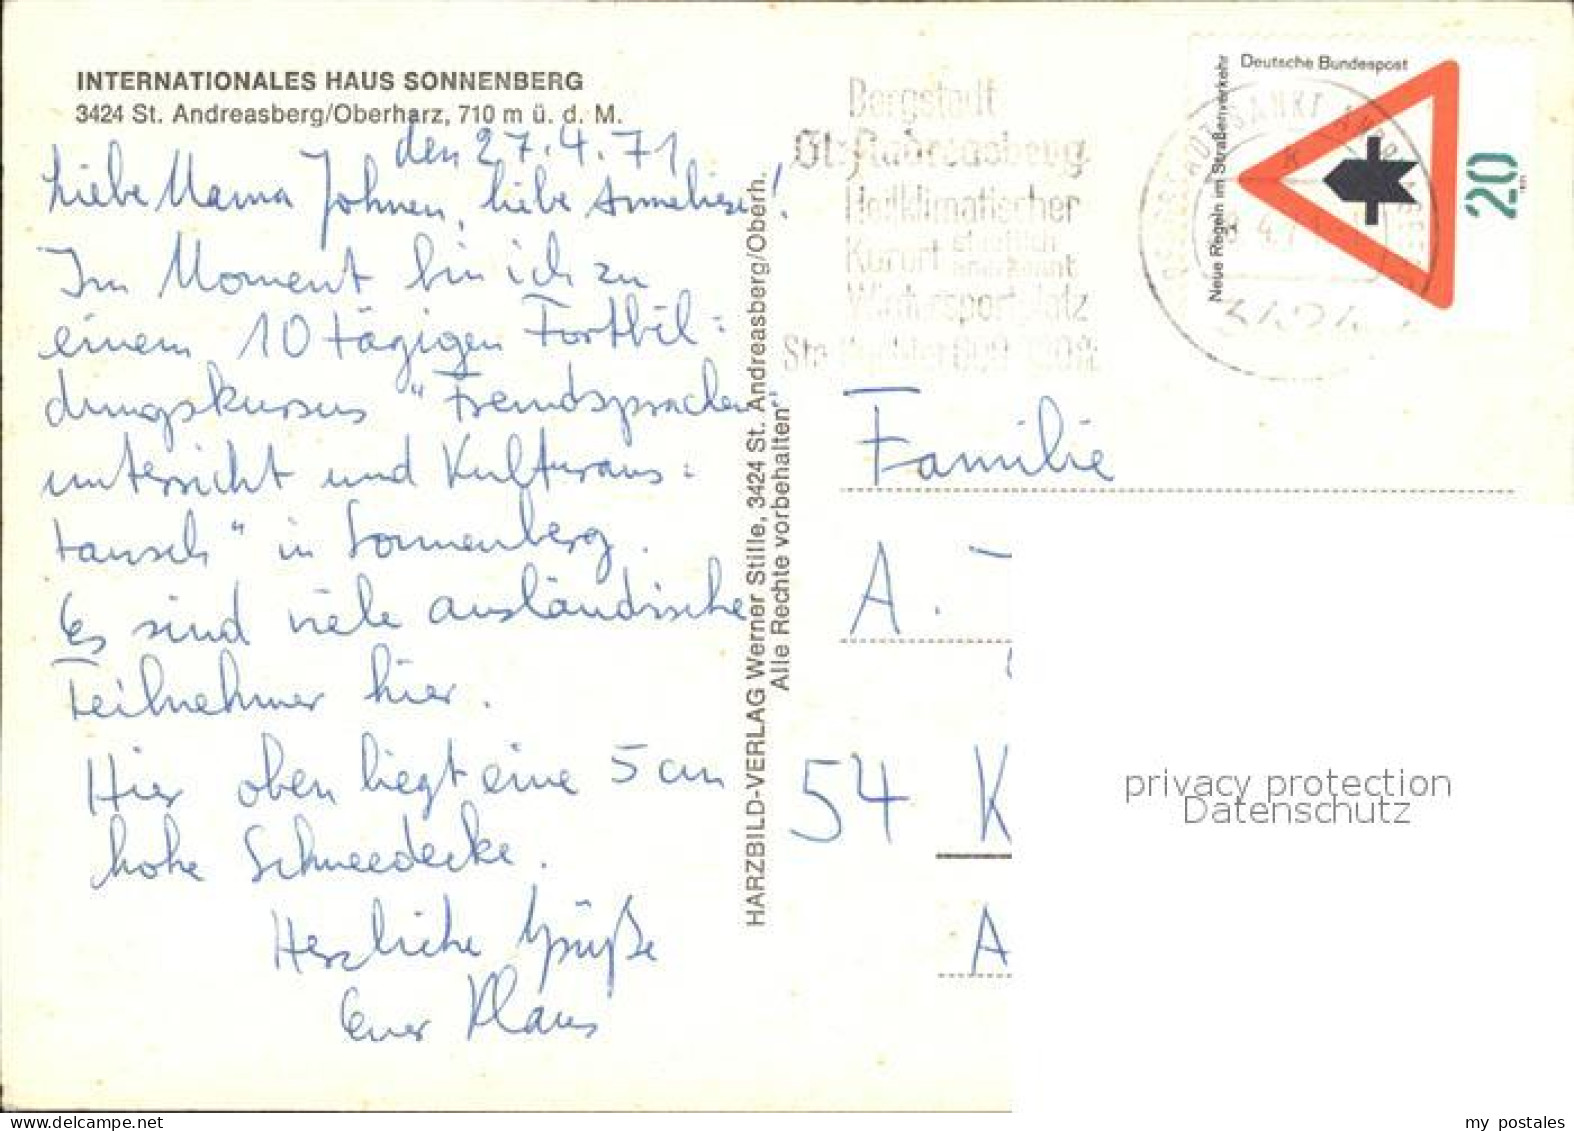 INTERNATIONALES HAUS SONNENBERG
3424 St. Andreasberg/Oberharz, 710 m ü. d. M.
den 27.4.71
Liebe Mama Johnen, liebe Anneliese!
Im Moment bin ich zu
einem 10 tägigen Fortbil=
dungskursus "Fremdsprachen=
unterricht und Kulturaus=
tausch" in Sonnenberg.
Es sind viele ausländische
Teilnehmer hier.
Hier oben liegt eine 5 cm
hohe Schneedecke.
Herzliche Grüße
Euer Klaus
HARZBILD-VERLAG Werner Stille, 3424 St. Andreasberg/Oberh.
"Alle Rechte vorbehalten"
Bergstadt
St. Andreasberg
Heilklimatischer
Kurort staatlich
anerkannt
Wintersportplatz
Deutsche Bundespost
Neue Regeln im Straßenverkehr
20
1971
BERGSTADT SANKT ANDREASBERG
3424
Familie
A.
54 K
A
privacy protection
Datenschutz
www.delcampe.net
my postales